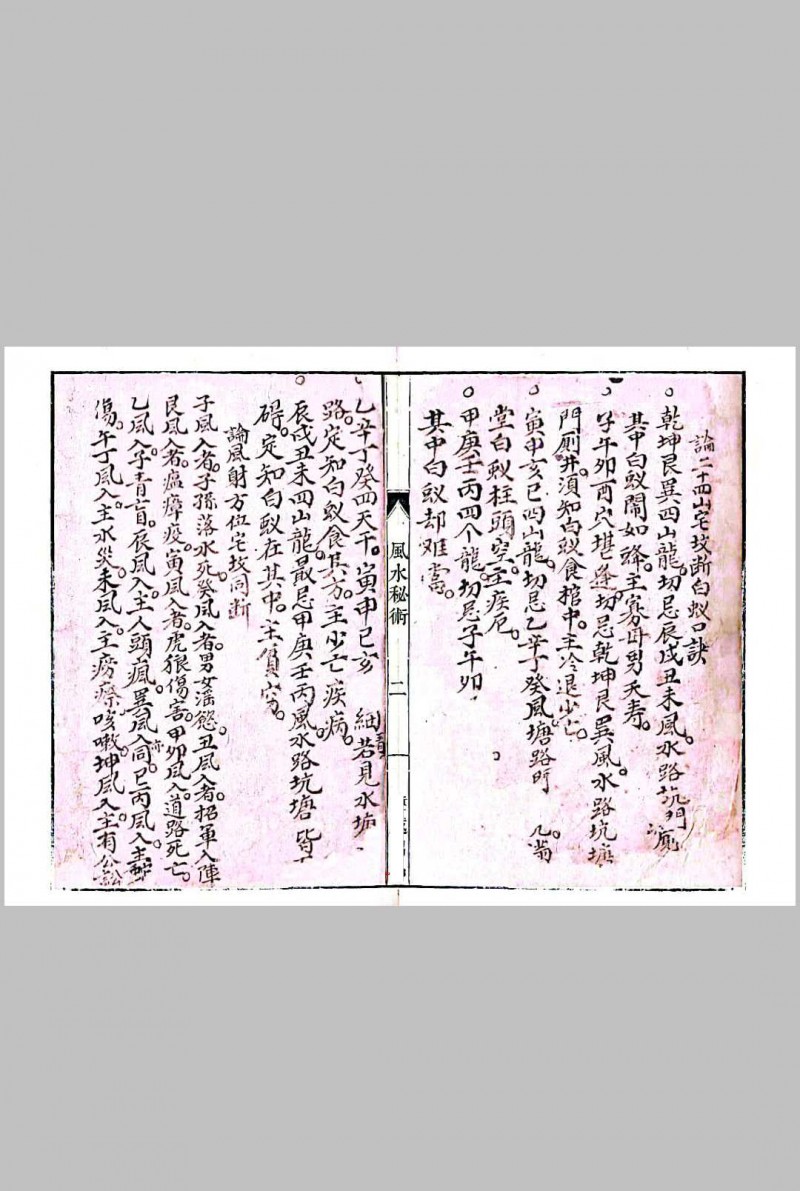 論二十四山宅坟断白蚁口訣
○乾坤艮巽四山龍。切忌辰戌丑未風。水路坑門廁
其中白蚁鬧如蜂。主寡母男夭寿。
○子午卯酉穴堪逢。切忌乾坤艮巽風。水路坑塘
門厠井。須知白蚁食棺中。主冷退少亡。
○寅申亥巳四山龍。切忌乙辛丁癸風。塘路門
堂白蚁柱頭空。主疾厄。
○甲庚壬丙四个龍。切忌子午卯
其中白蚁却难當。
風水秘術
二
乙辛丁癸四天干。寅申巳亥 細若見水塘
路。定知白蚁食其方。主少亡疾病。
○辰戌丑未四山龍。最忌甲庚壬丙風。水路坑塘皆
碍。定知白蚁在其中。主貧穷。
論風射方位宅坟同断
子風入者。子孫落水死。癸風入者。男女滛慾。丑風入者。招軍入陣
艮風入者。瘟瘴疫。寅風入者。虎狼傷害。甲卯風入。道路死亡。
乙風入。子青盲。辰風入。主人頭瘋。巽風入亦同。巳丙風入。主
傷。午丁風入。主水災。未風入。主痨瘵咳嗽。坤風入。主有公訟